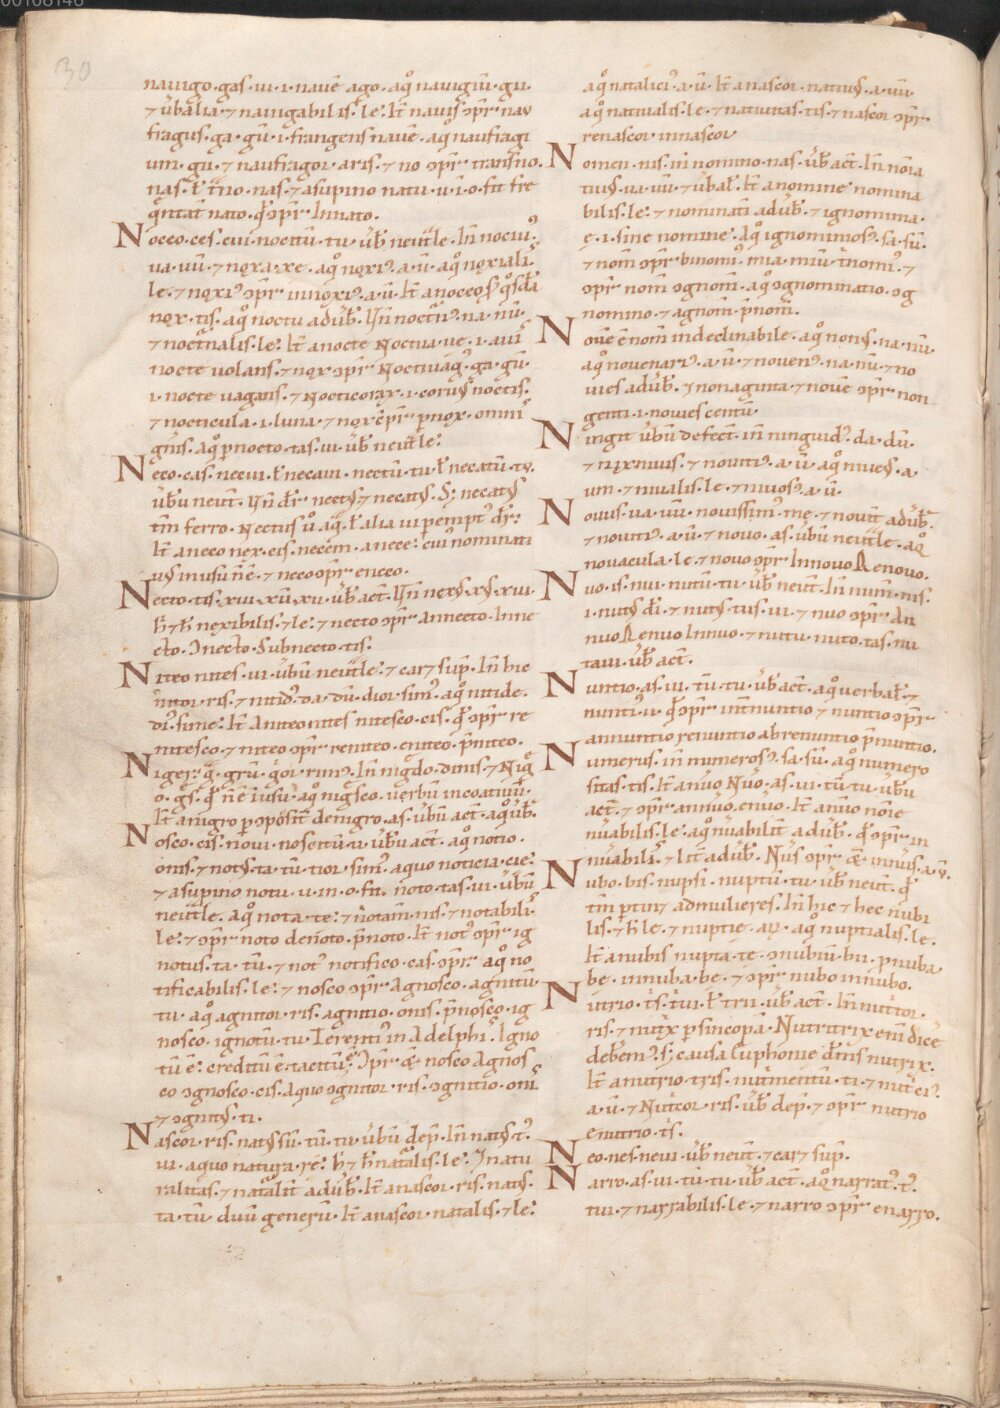 30
nauigo·gas·ui·i·nauē ago·aq̊ nauigiū·gii
⁊ ūbalia·⁊ nauigabilis·le: It̄ nauis ↄpr̄ nau
fragus·ga·gū·i·frangens nauē·aq̊ naufragi
um·gii·⁊ naufragor·aris·⁊ no ↄpr̄ transno·
nas·ł t̄no·nas·⁊ asupino natu·u·i·o·fit fre
q̄ntat̄ nato·q̊ ↄpr̄ Innato·
Noceo·ces·cui·nocitū·tu·ūb̄ neut̄le·In̄ nociu᾽·
ua·uū·⁊ noxa·xe·aq̊ noxi᾽·a·ū·aq̊ noxiali
le·⁊ noxi᾽ ↄpr̄ innoxi᾽·a·ū·It̄ anoceo
nox·tis·aq̊ noctu adūb̄·In̄ noct̄n᾽·na·nū·
⁊ noct̄nalis·le: It̄ anocte Noctua·ue·i·aui
nocte uolans·⁊ nox ↄpr̄ Noctiuag᾽·ga·gū·
i·nocte uagans·⁊ Nocticorax·i·coruꝰ noctis·
⁊ nocticula·i·luna·⁊ nox ↄpr̄ p̱nox·omni
gnis·aq̊ p̱nocto·tas·ui·ūb̄ neut̄le:
Neco·cas·necui·ł necaui·nectū·tu·ł necatū·tu·
ūbū neut̄·In̄ dr̄ nectꝰ·⁊ necatꝰ·Sꝫ necatꝰ
tm̄ ferro·Nectus ů aq̊·ł alia ui p̱empt᾽ dr̄:
It̄ aneco nex·cis·necem·anece: cui nominati
uꝰ inusu n̄ ē·⁊ neco ↄpr̄ eneco·
Necto·tis·xui·xū·xu·ūb̄ act̄·In̄ nexꝰ·xꝰ·xui·
h̄ ⁊ h̄ nexibilis·⁊ le:⁊ necto ↄpr̄ Annecto·Inne
cto·Ↄnecto·Subnecto·tis·
Niteo·nites·ui·ūbū neut̄le:⁊ car⁊ sup̄·In̄ hic
nitor·ris·⁊ nitid᾽·da·dū·dior·sim᾽·aq̊ nitide·
di᾽·sime: It̄ Aniteo nites nitesco·cis·q̊ ↄpr̄ re
nitesco·⁊ niteo ↄpr̄ reniteo·eniteo·p̄niteo·
Niger·g̊·grū·g̊or·rim᾽·In̄ nig̊do·dinis·⁊ Nig̊
o·g̊s·q̊ n̄ ē iusu᾽·aq̊ nig̊sco·uerbu incoatiuū:
It̄ anigro p̱ ↄposit̄ denigro·as·ūbū act̄·aq̊ ūb̄·
Nosco·cis·noui·noscitū·u·ūbū act̄·aq̊ notio·
onis·⁊ notꝰ·ta·tū·tior·sim᾽·aquo noticia·cie:
⁊ asupino notu·u·in·o·fit·noto·tas·ui·ūbū
neut̄le·aq̊ nota·te:⁊ notam̄·nis·⁊ notabili
le:⁊ ↄpr̄ noto denoto·p̄noto·It̄ not᾽ ↄpr̄ ig
notus·ta·tū·⁊ not᾽ notifico·cas·ↄpr̄·aq̊ no
tificabilis·le:⁊ nosco ↄpr̄ Agnosco·agnitū·
tu·aq̊ agnitor·ris·agnitio·onis·p̄nosco·ig
nosco·ignotū·tu·Terenti᾽ in Adelphi·Igno
tū ē: creditū ē·tacitū: Ↄpr̄ nosco Agnos
co ↄgnosco·cis·Aquo ↄgnitor·ris·ↄgnitio·oni
⁊ ↄgnitꝰ·ti·
Nascor·ris·natꝰ sū·tū·tu·ūbū dep̄·In̄ natꝰ·t᾽·
ui·aquo natura·re: h̄ ⁊ h̄ nat̄alis·le·Ↄnatu
ralitas·⁊ nat̄alit̄ adūb̄·It̄ anascor·ris·natꝰ·
ta·tū·duū generū·It̄ anascor·natalis·⁊ le:
aq̊ natalici᾽·a·ū·It̄ anascor·natiuꝰ·a·uū
aq̊ natiualis·le·⁊ natiuitas·tis·⁊ nascor ↄpr̄
renascor·innascor
Nomen·nis·in̄ nomino·nas·ūb̄ act̄·In̄ noīa
tiuꝰ·ua·uū·⁊ ūbał·It̄ anomine nomina
bilis·le:⁊ nominati adūb̄·⁊ ignominia·
e·i·sine nomine·Aq̊ ignominios᾽·sa·sū·
⁊ nom̄ ↄpr̄ binomi᾽·mia·miū·t̄nomi᾽·⁊
ↄpr̄ nom̄ ↄgnom̄·aq̊ ↄgnominatio·ↄg
nomino·⁊ agnom̄·p̄nom̄·
Nouē ē nom̄ indeclinabile·aq̊ nonꝰ·na·nū·
aq̊ nouenari᾽·a·ū·⁊ nouen᾽·na·nū·⁊ no
uies adūb̄·⁊ nonaginta·⁊ nouē ↄpr̄ non
genti·i·nouies centū·
Ningit ūbū defect̄·in̄ ninguid᾽·da·dū·
⁊ nix niuis·⁊ nouiti᾽·a·ū·aq̊ niueꝰ·a·
um·⁊ niualis·le·⁊ niuos᾽·a·ū·
Nouus·ua·uū·nouissim᾽·me·⁊ nouit̄ adūb̄·
⁊ nouiti᾽·a·ū·⁊ nouo·as·ūbū neut̄le·aq̊
nouacula·le·⁊ nouo ↄpr̄ Innouo Renouo·
Nuo·is·nui·nutū·tu·ūb̄ neut̄·In̄ num̄·nis·
i·nutꝰ di·⁊ nutꝰ·tus·ui·⁊ nuo ↄpr̄ An
nuo Renuo Innuo·⁊ nutu·nuto·tas·nu
taui·ūb̄ act̄·
Nuntio·as·ui·tū·tu·ūb̄ act̄·aq̊ uerbał·⁊
nunti᾽·ii·q̊ ↄpr̄ int̄nuntio·⁊ nuntio ↄpr̄
annuntio renuntio abrenuntio p̄nuntio·
Numerus·in̄ numeros᾽·sa·sū·aq̊ numero
sitas·tis·It̄ anuo Nuo·as·ui·tū·tu·ūbū
act̄·⁊ ↄpr̄ annuo·enuo·It̄ anuo noīe
nuabilis·le·aq̊ nuabilit̄ adūb̄·q̊ ↄpr̄ in
nuabili·⁊ lit̄ adūb̄·Nus ↄpr̄ innus·a·ū·
Nubo·bis·nupsi·nuptū·tu·ūb̄ neut̄·q̊
tm̄ p̱tin⁊ admulieres·In̄ hic ⁊ hec nubi
lis·⁊ h̄ le·⁊ nuptie·aꝝ·aq̊ nuptialis·le·
It̄ anubis nupta·te·ↄnubiū·bii·p̄nuba
be·innuba·be·⁊ ↄpr̄ nubo innubo·
Nutrio·t̄s·t̄ui·ł trii·ūb̄ act̄·In̄ nut̄tor·
ris·⁊ nut̄x p̱ sincopā·Nutritrix enī dic̄e
debem᾽·sꝫ causa Euphonie dn̄is nutrix·
It̄ anutrio·tris·nut̄mentū·ti·⁊ nut̄ci᾽·
a·ū·⁊ Nut̄cor·ris·ūb̄ dep̄·⁊ ↄpr̄ nutrio
enutrio·t̄s·
Neo·nes·neui·ūb̄ neut̄·⁊ car⁊ sup̄·
Narro·as·ui·tū·tu·ūb̄ act̄·aq̊ narrat᾽·t᾽·
tui·⁊ narrabilis·le·⁊ narro ↄpr̄ enarro·